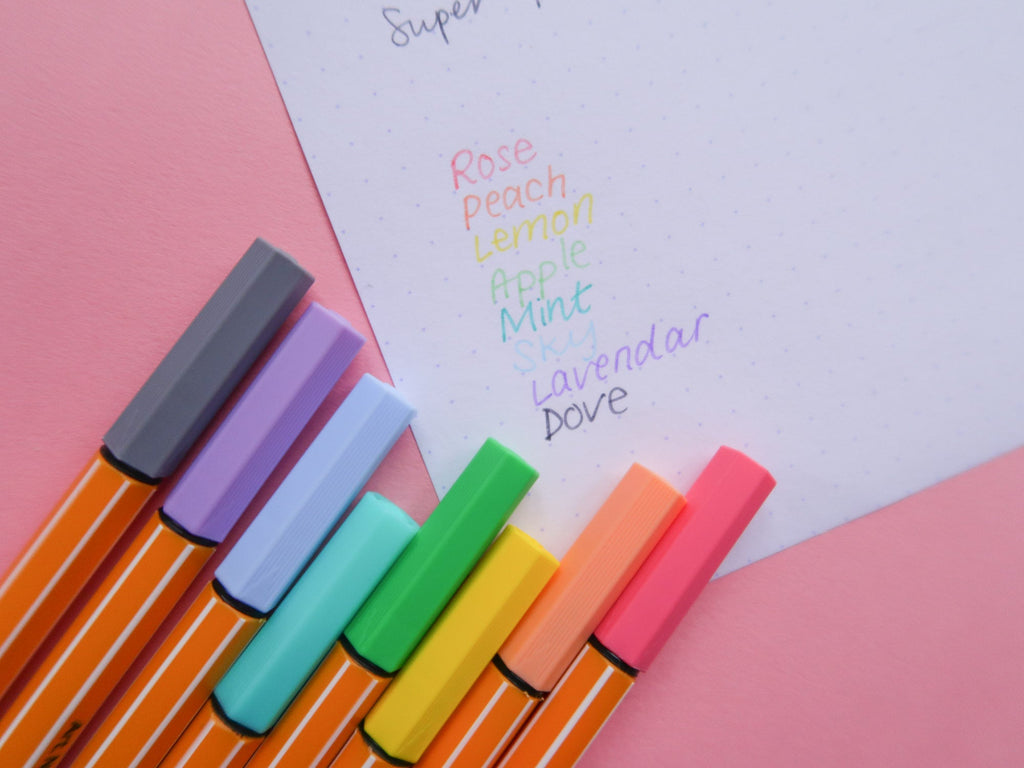 Super
Rose
Peach
Lemon
Apple
Mint
Sky
Lavendar
Dove